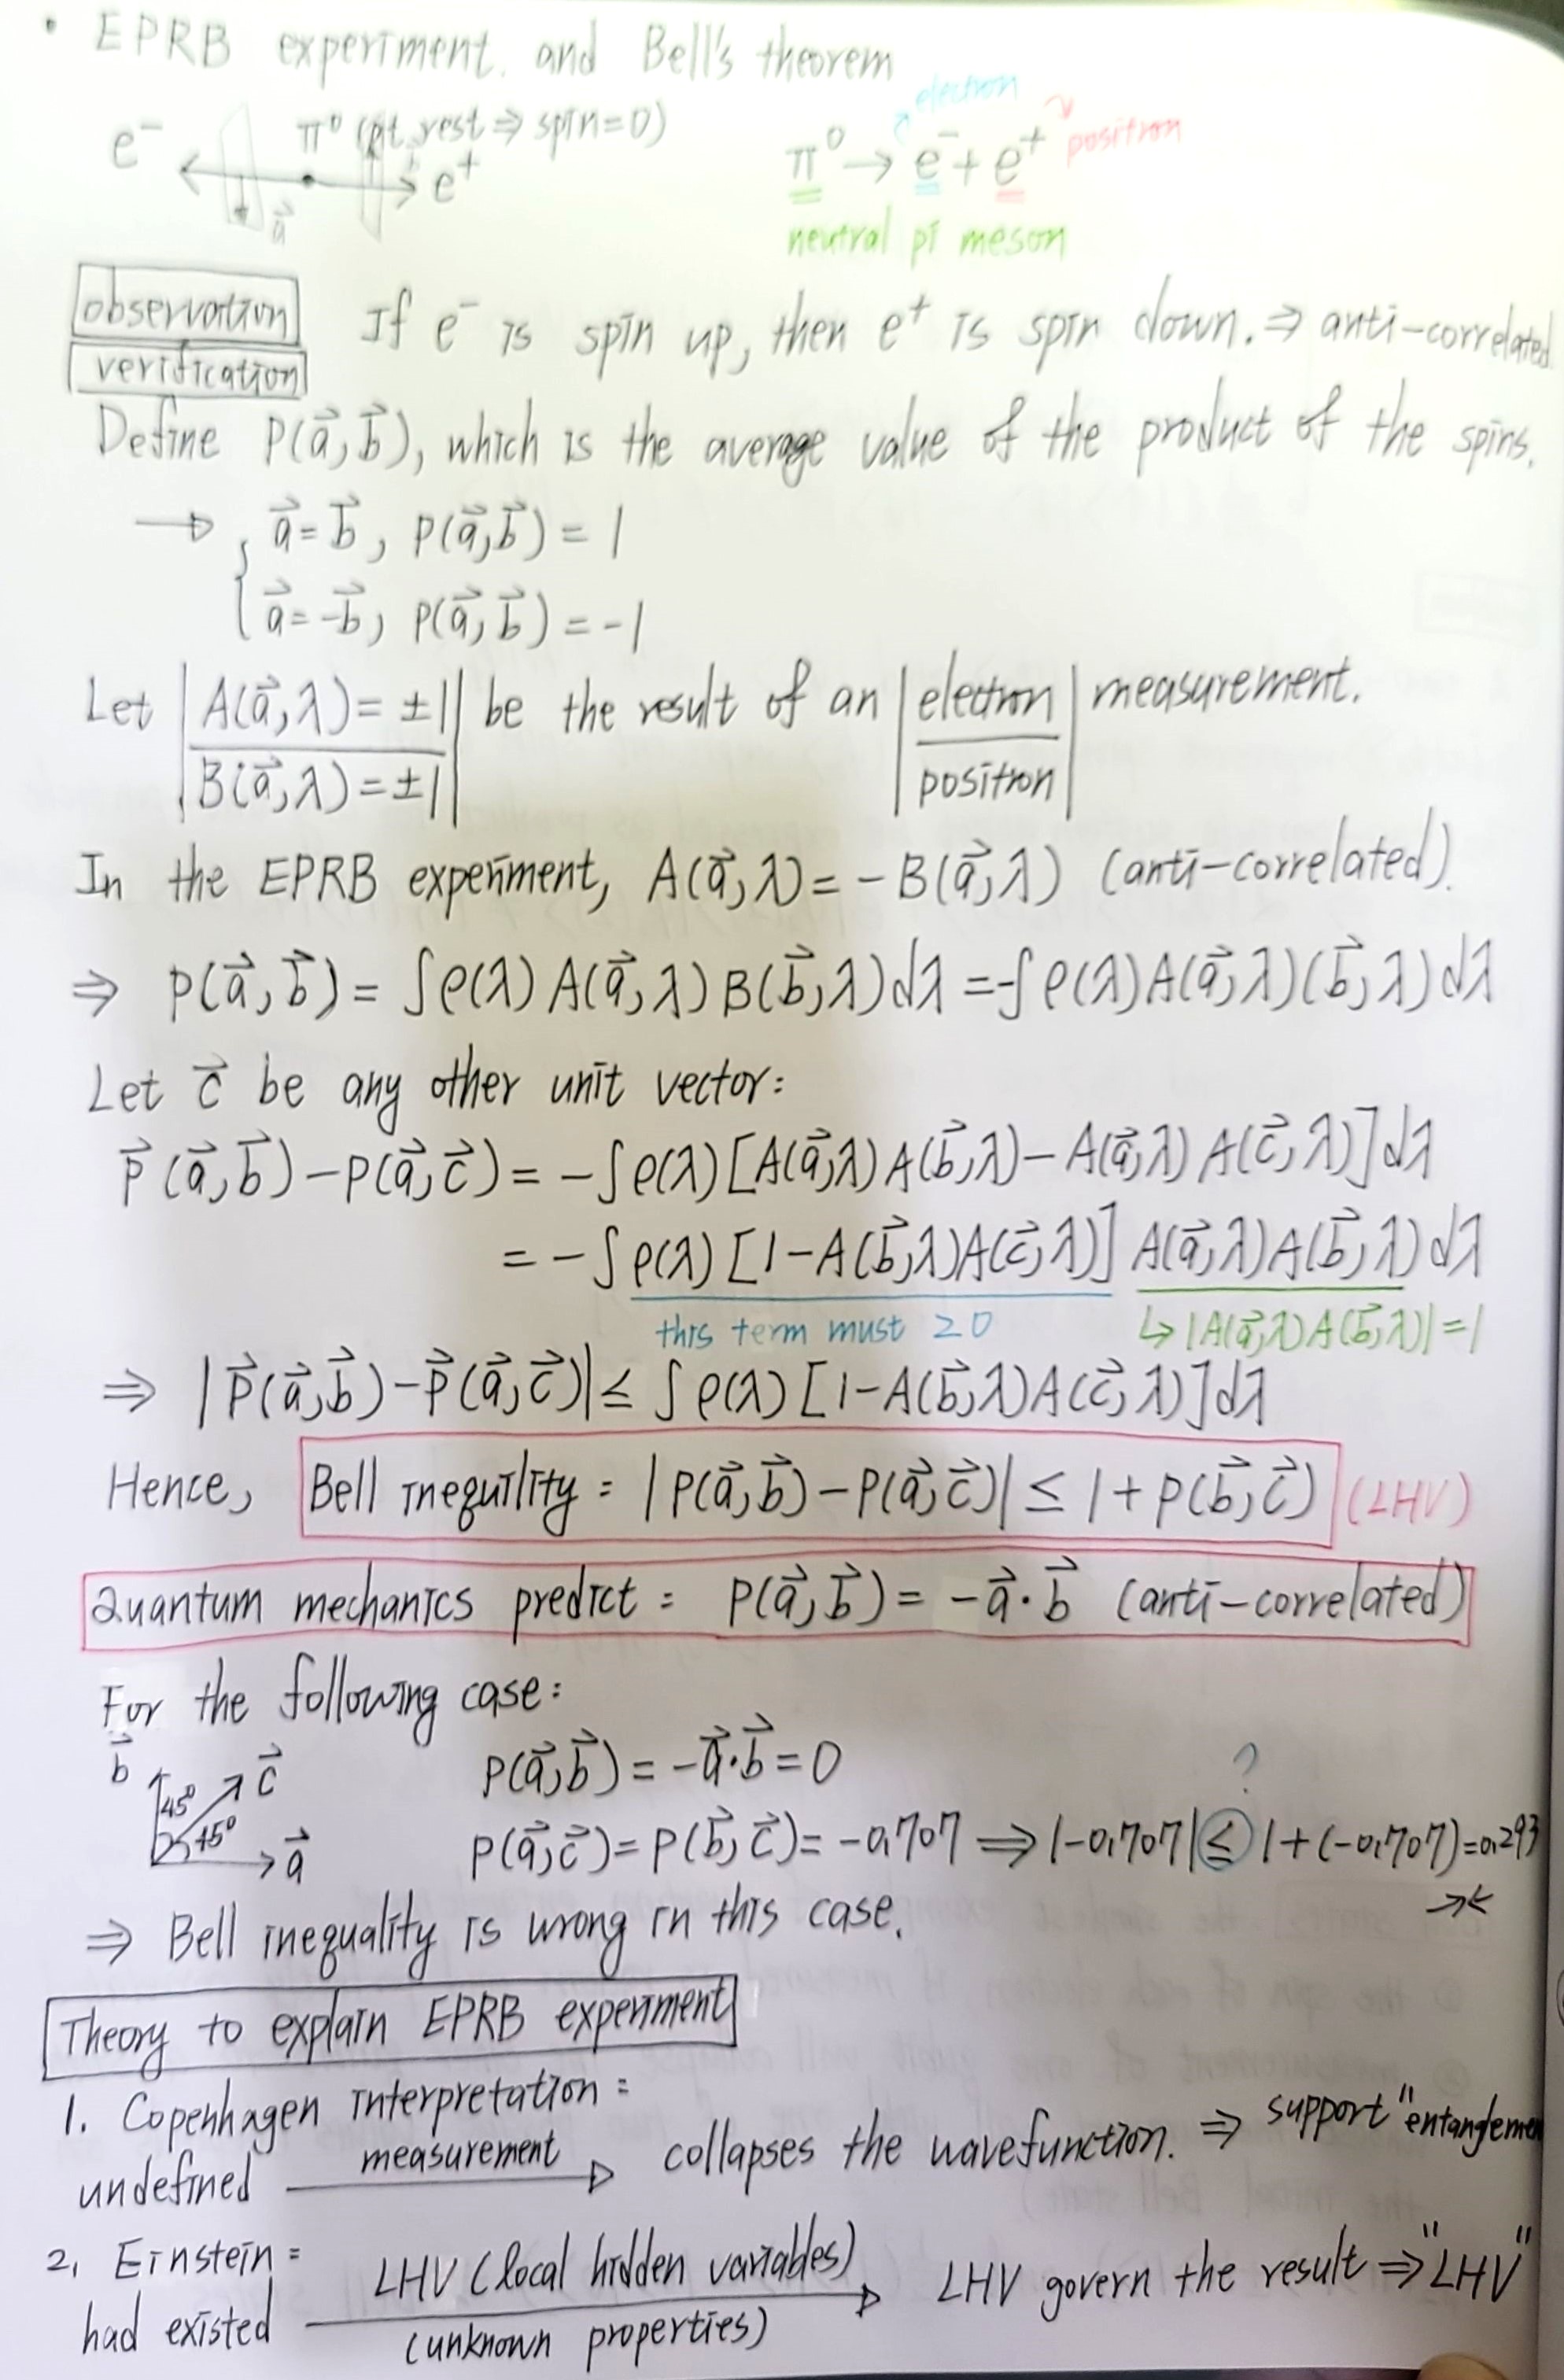 • EPRB experiment. and Bell's theorem
e⁻ π⁰ (at rest ⇒ spin=0) e⁺
a⃗
electron
positron
π⁰ → e⁻ + e⁺
neutral pi meson
observation
verification
If e⁻ is spin up, then e⁺ is spin down. ⇒ anti-correlated
Define P(a⃗, b⃗), which is the average value of the product of the spins.
→ { a⃗ = b⃗, P(a⃗, b⃗) = 1
a⃗ = -b⃗, P(a⃗, b⃗) = -1
Let |A(a⃗, λ) = ±1| be the result of an |electron| measurement.
|B(a⃗, λ) = ±1| |position|
In the EPRB experiment, A(a⃗, λ) = -B(a⃗, λ) (anti-correlated).
⇒ P(a⃗, b⃗) = ∫ρ(λ) A(a⃗, λ) B(b⃗, λ) dλ = -∫ρ(λ) A(a⃗, λ)(b⃗, λ) dλ
Let c⃗ be any other unit vector:
P⃗(a⃗, b⃗) - P(a⃗, c⃗) = -∫ρ(λ) [A(a⃗, λ) A(b⃗, λ) - A(a⃗, λ) A(c⃗, λ)] dλ
= -∫ρ(λ) [1 - A(b⃗, λ) A(c⃗, λ)] A(a⃗, λ) A(b⃗, λ) dλ
this term must ≥0 ↳ |A(a⃗, λ) A(b⃗, λ)| = 1
⇒ |P⃗(a⃗, b⃗) - P⃗(a⃗, c⃗)| ≤ ∫ρ(λ) [1 - A(b⃗, λ) A(c⃗, λ)] dλ
Hence, Bell inequility = |P(a⃗, b⃗) - P(a⃗, c⃗)| ≤ 1 + P(b⃗, c⃗) (LHV)
Quantum mechanics predict = P(a⃗, b⃗) = -a⃗·b⃗ (anti-correlated)
For the following case:
b⃗ 45° c⃗
45° a⃗
P(a⃗, b⃗) = -a⃗·b⃗ = 0
?
P(a⃗, c⃗) = P(b⃗, c⃗) = -0.707 ⇒ |-0.707| ≤ 1 + (-0.707) = 0.293
→←
⇒ Bell inequality is wrong in this case.
Theory to explain EPRB experiment
1. Copenhagen interpretation =
undefined measurement → collapses the wavefunction. ⇒ support "entangleme
2. Einstein =
had existed LHV (local hidden variables) → LHV govern the result ⇒ "LHV"
(unknown properties)